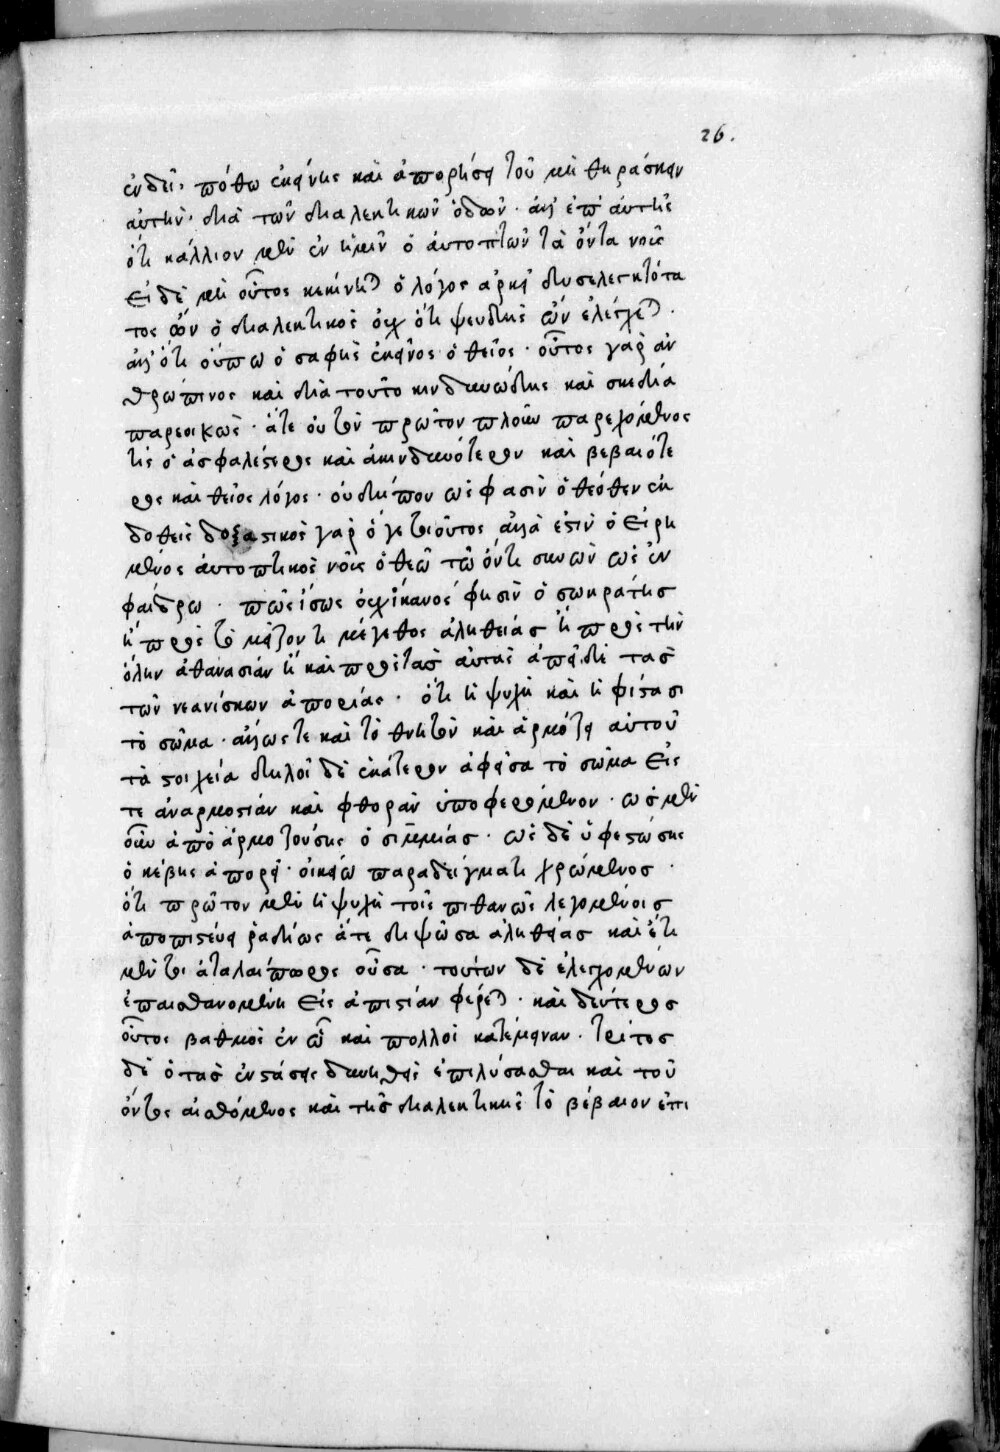 26.
ἐνδεῖ· πόθω ἐκείνης καὶ ἀπορήσει τοῦ μὴ θηράσκειν
αὐτὴν· διὰ τῶν διαλεκτικῶν ὁδῶν· ἀλλ' ἐπ' αὐτῆς
ὅτι κάλλιον μὲν ἐν ἡμῖν ὁ αὐτοπτῶν τὰ ὄντα νοῦς
εἰ δὲ μὴ οὗτος κεκίνηται ὁ λόγος ἀρκεῖ δυσελεγκτότα
τος ὢν ὁ διαλεκτικὸς οὐχ ὅτι ψευδὴς ὢν ἐλέγχεται·
ἀλλ' ὅτι οὔπω ὁ σαφὴς ἐκεῖνος ὁ θεῖος· οὗτος γὰρ ἀν
θρώπινος καὶ διὰ τοῦτο κινδυνώδης καὶ σχεδία
παρεοικὼς· ἅτε οὐ τὸν πρῶτον πλοῦν παρεχόμενος
τίς ὁ ἀσφαλέστερος καὶ ἀκινδυνότερον καὶ βεβαιότε
ρος καὶ θεῖος λόγος· οὐ δήπου ὥς φασὶν ὁ θεόθεν ἐκ
δοθεὶς δοξαστικὸς γὰρ ὅ γε τοιοῦτος ἀλλὰ ἐστὶν ὁ εἰρη
μένος αὐτοπτικὸς νοῦς ὁ θεῶ τῶ ὄντι συνὼν ὡς ἐν
φαίδρω· πῶς ἴσως οὐχ ἱκανὸς φησὶν ὁ σωκράτης
ἢ πρὸς τὸ μεῖζον τι μέγεθος ἀληθείας ἢ πρὸς τὴν
ὅλην ἀθανασίαν ἢ καὶ πρὸς τὰς αὐτὰς ἀπεῖδε τὰς
τῶν νεανίσκων ἀπορίας· ὅτι ἡ ψυχὴ καὶ ἡ φύσασι
τὸ σῶμα· ἄλλως τε καὶ τὸ θνητὸν καὶ ἁρμόζει αὐτοῦ
τὰ στοιχεῖα δηλοῖ δὲ ἑκάτερον ἀφεῖσα τὸ σῶμα εἴς
τε ἀναρμοστίαν καὶ φθορὰν ὑποφερόμενον· ὡς μὲν
οὖν ἀπὸ ἁρμοζούσης ὁ σιμμίας· ὡς δὲ ὑφεστώσης
ὁ κέβης ἀπορεῖ· οἰκείω παραδείγματι χρώμενος·
ὅτι πρῶτον μὲν ἡ ψυχὴ τοῖς πιθανῶς λεγομένοις
ἀποπιστεύει ῥαδίως ἅτε διψῶσα ἀληθείας καὶ ἔτι
μέν τοι ἀταλαίπωρος οὖσα· τούτων δὲ ἐλεγχομένων
ἐπαισθανομένη εἰς ἀπιστίαν φέρεται· καὶ δεύτερος
οὗτος βαθμὸς ἐν ᾧ καὶ πολλοὶ κατέμειναν· τρίτος
δὲ ὁ τὰς ἐνστάσεις δυνηθεὶς ἐπιλύσασθαι καὶ τοῦ
ὄντος αἰσθόμενος καὶ τῆς διαλεκτικῆς τὸ βέβαιον ἐπι